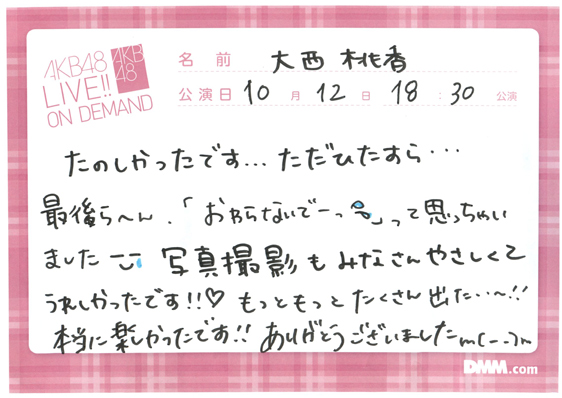 AKB48
LIVE!!
ON DEMAND
AKB
48
名前 大西桃香
公演日 10月12日 18:30公演
たのしかったです...ただひたすら...
最後ら〜ん、「おわらないで〜っ」って思っちゃい
ました 写真撮影もみなさんやさしくて
うれしかったです!!♡ もっともっとたくさん出た..〜!!
本当に楽しかったです!! ありがとうございましたm(--)m
DMM.com